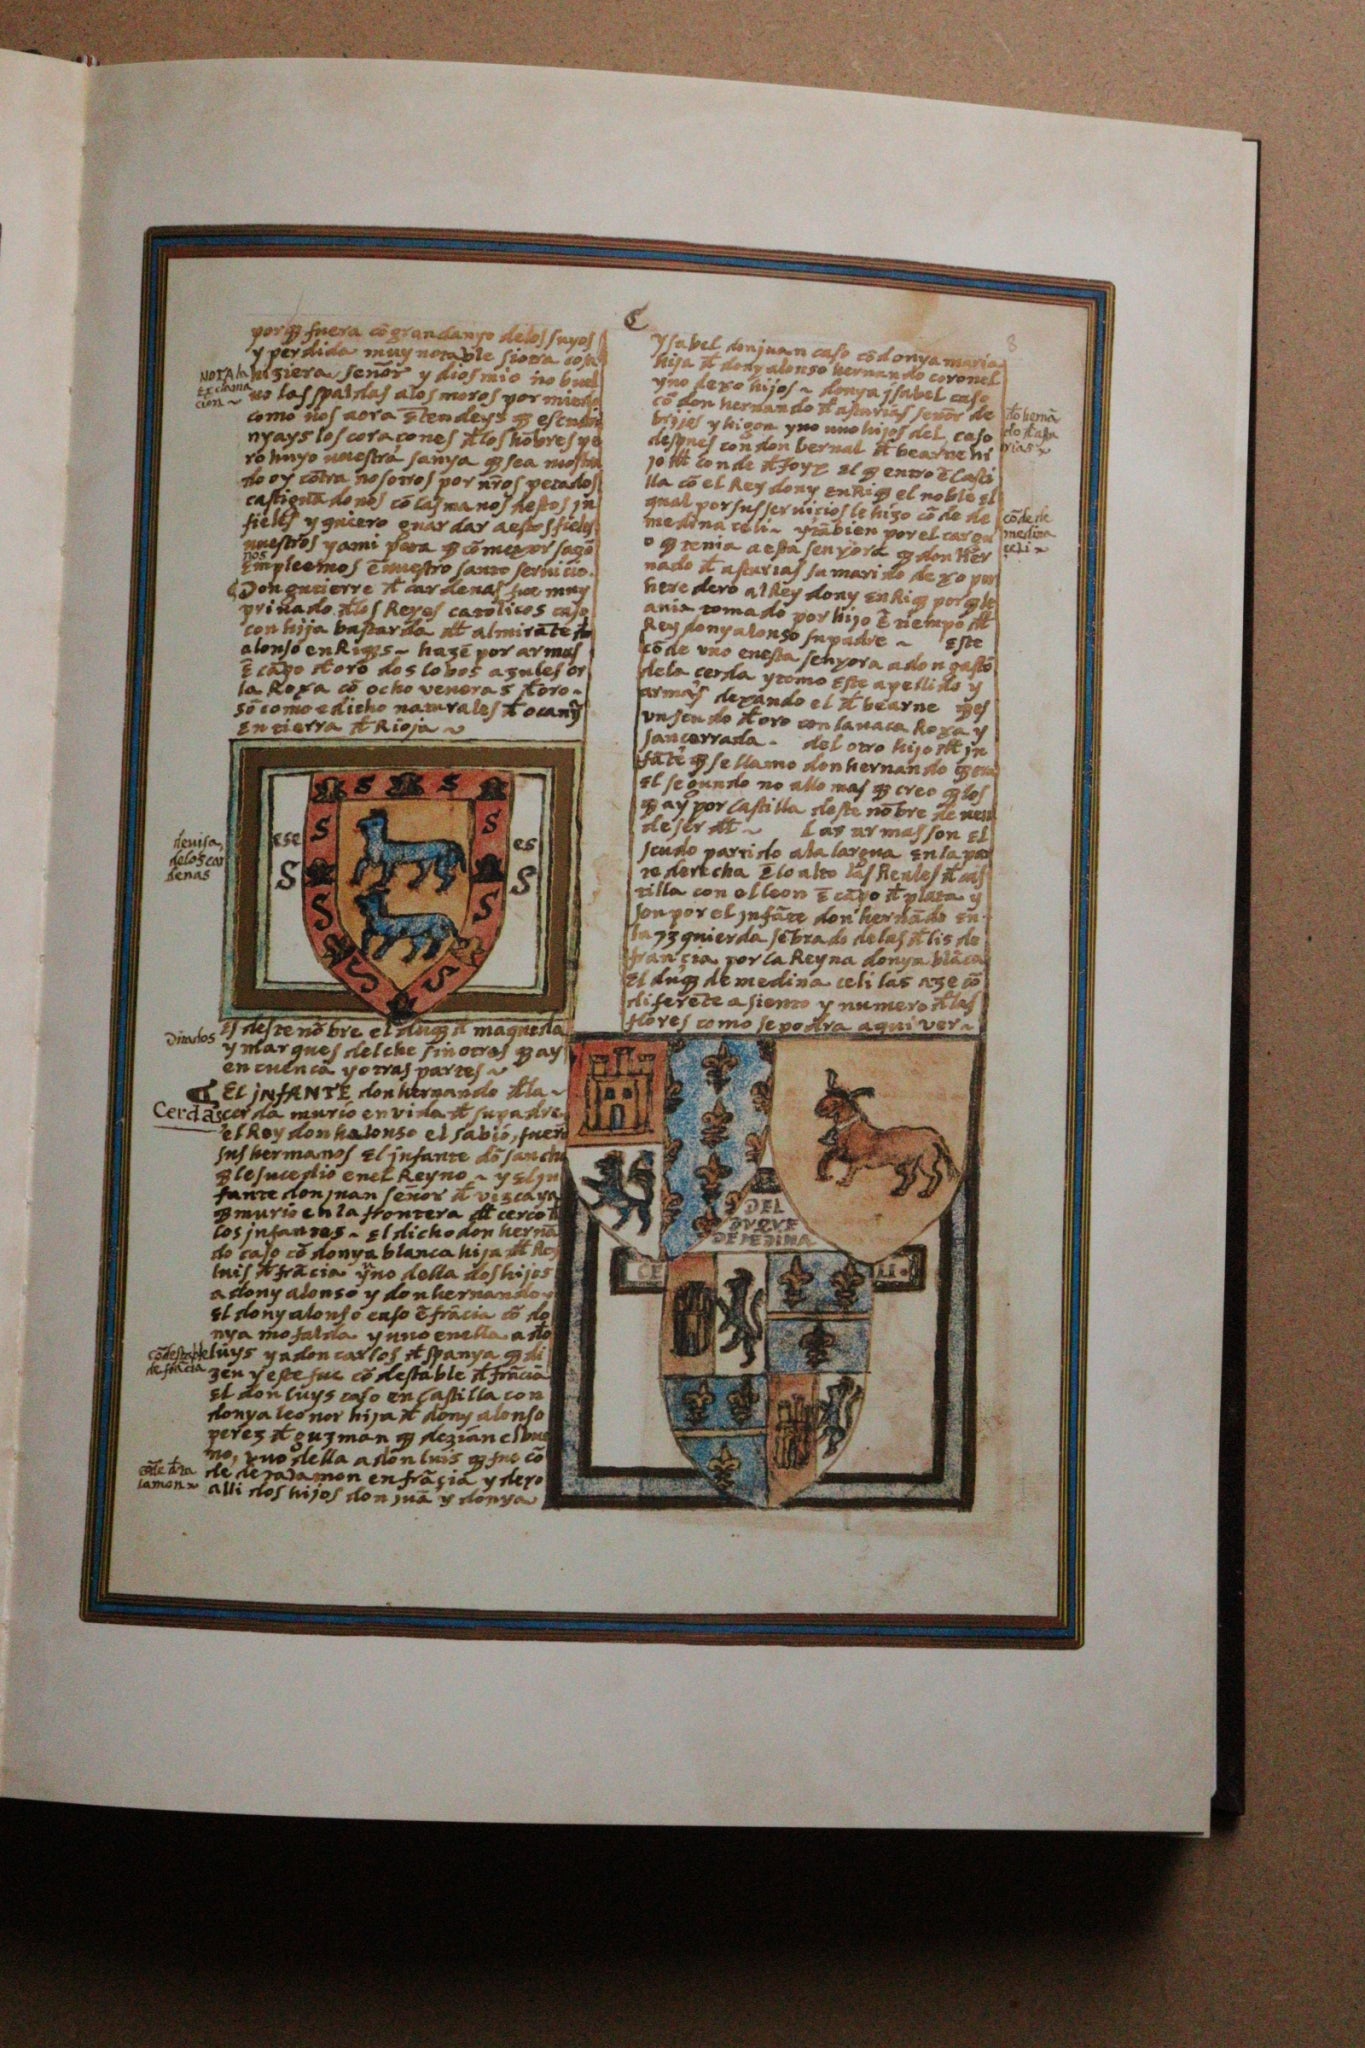 porq̃ fuera cõ gran danyo delos suyos
y perdida muy notable si otra cosa
NOTA la
Exclama
cion ~
hiziera señor y dios mio no buel
uo las spaldas alos moros por miedo
como uos aora ẽtendeys q̃ escudri
nyays los coraçones đlos hõbres pe
ro huyo uuestra sanya q̃ sea mostra
do oy cõtra nosotros por nr̃os pecados
castiguãdonos cõ las manos destos in
fieles y quiero guardar aestos fieles
uuestros y ami para q̃ cõ mejor sazõ
nos
Empleemos ẽ uuestro santo seruicio.
Don gutierre đ cardenas fue muy
priuado đlos Reyes catolicos caso
con hija bastarda đl almirãte dõ
alonso enRiq̃s ~ hazẽ por armas
ẽ cãpo đ oro dos lobos azules or
la Roxa cõ ocho veneras đ oro ~
sõ como e dicho naturales đ ocanỹ
En tierra đ Rioja ~
deuisa,
delos car
denas
ese
S
es
S
S S
S S
S S
S S
Ditados
Es deste nõbre el duq̃ đ maqueda
y marques delche sin otros q̃ ay
en cuenca y otras partes ~
Cerdas
El jNFANTE don hernando đ la ~
cerda murio en vida đ su padre
el Rey don halonso el sabio, fuerõ
sus hermanos El jnfante dõ sancho
q̃ le sucedio enel Reyno ~ y El jn
fante don juan señor đ vizcaya
q̃ murio en la frontera đl cerco đ
los jnfantes ~ El dicho don hernã
do caso cõ donya blanca hija đl Rey
luis đ frãcia y uuo della dos hijos
a dony alonso y don hernando y
El dony alonso caso ẽ frãcia cõ do
nya mofalda y uuo enella a dõ
cõdestable
de frãcia
luys y a don carlos đ spanya q̃ di
zen y este fue cõdestable đ frãcia
El don luys caso en Castilla con
donya leonor hija đ dony alonso
perez đ guzman q̃ dezian el bue
no, vuo della a don luis q̃ fue cõ
cõde đ ta
lamon ~
de de talamon en frãçia y dexo
alli dos hijos don juã y donya
8
Ysabel don juan caso cõ donya maria
hija đ dony alonso hernando coronel
y no dexo hijos ~ donya jsabel caso
cõ don hernando đ asturias señor de
dõ hernã
do đ astu
rias ~
brijes y higon y no uuo hijos del, caso
despues con don bernal đ bearne hi
jo đl conde đ foyx El q̃ entro ẽ Casti
lla cõ el Rey dony enRiq̃ el noble El
qual por sus seruicios le hizo cõde de
cõde de
medina
celi ~
medina celi ~ y tãbien por el cargu
o q̃ tenia a esta senyora q̃ don Her
nado đ asturias su marido dexo por
heredero al Rey dony EnRiq̃ porq̃ le
auia tomado por hijo ẽ tiempo đl
Rey dony alonso su padre ~ Este
cõde vuo enesta senyora a don gastõ
dela cerda y tomo Este apellido y
armas dexando el đ bearne q̃ es
vn scudo đ oro con la uaca Roxa y
jancerrada ~ del otro hijo đl jn
fãte q̃ se llamo don hernando q̃ era
El segundo no allo mas q̃ creo q̃ los
q̃ ay por Castilla deste nõbre deuen
de ser đl ~ Las armas son El
scudo partido ala largua En la par
te derecha ẽ lo alto las Reales đ cas
tilla con el leon ẽ cãpo đ plata y
son por el jnfãte don hernãdo En ~
la yzquierda sẽbrado de las đ lis de
françia por la Reyna donya blãca
El duq̃ de medina celi las aze cõ
diferẽte asiento y numero đ las
flores como se podra aqui ver ~
DEL
DVQVE
DE MEDINA
CE LI ·